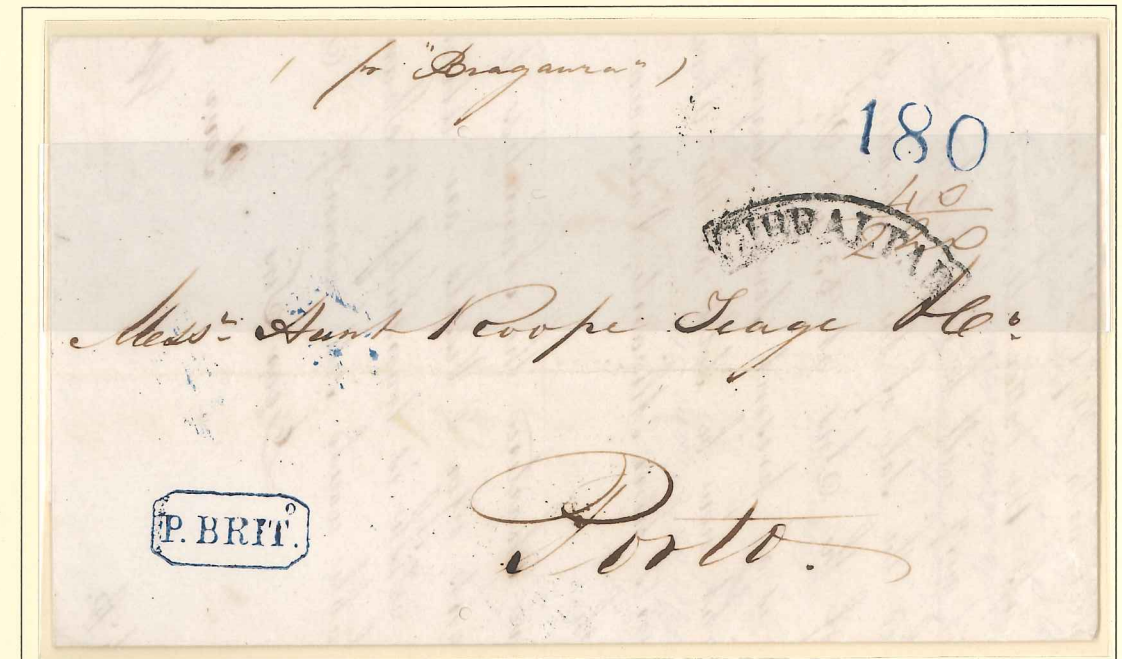 ( pr "Braganza" )
180
GIBRALTAR
Messrs. Hunt Roope Teage & Co.
P. BRITo.
Porto.